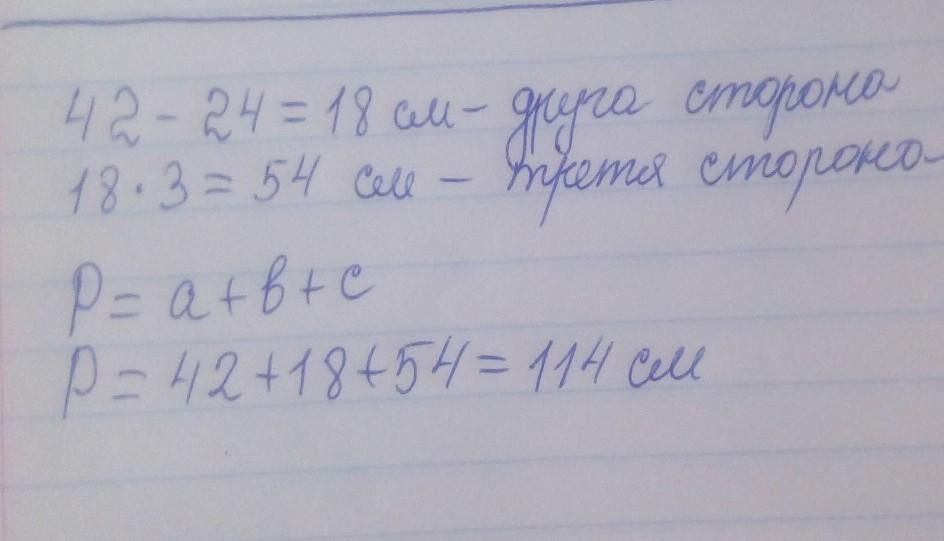 42 - 24 = 18 см - друга сторона
18 · 3 = 54 см - третя сторона
P = a + b + c
P = 42 + 18 + 54 = 114 см